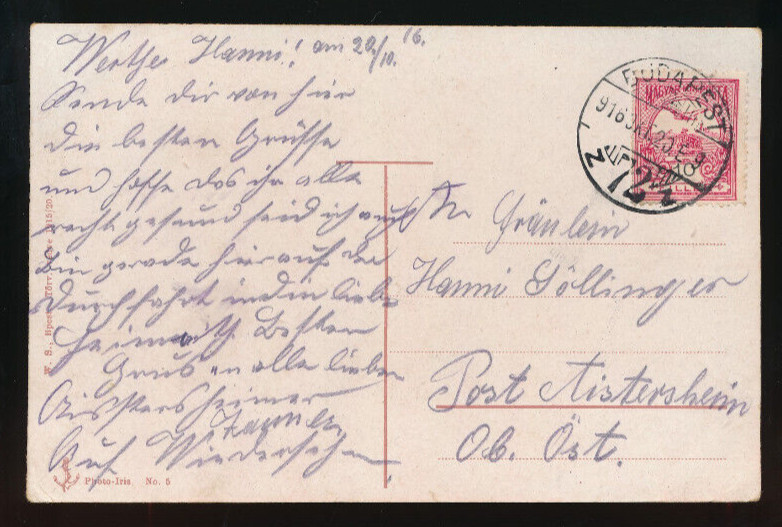 Werthe Hanni! am 20./10. 16.
Sende dir von hier
die besten Grüsse
und hoffe das ihr alle
recht gesund seid ich auch
bin gerade hier auf der
Durchfahrt in die liebe
Heimath Besten
Grus an alle lieben
Aistersheimer
Auf Wiedersehn
BUDAPEST
916
12
MAGYAR
An Fräulein
Hanni Göllinger
Post Aistersheim
Ob. Öst.
Photo-Iris No. 5